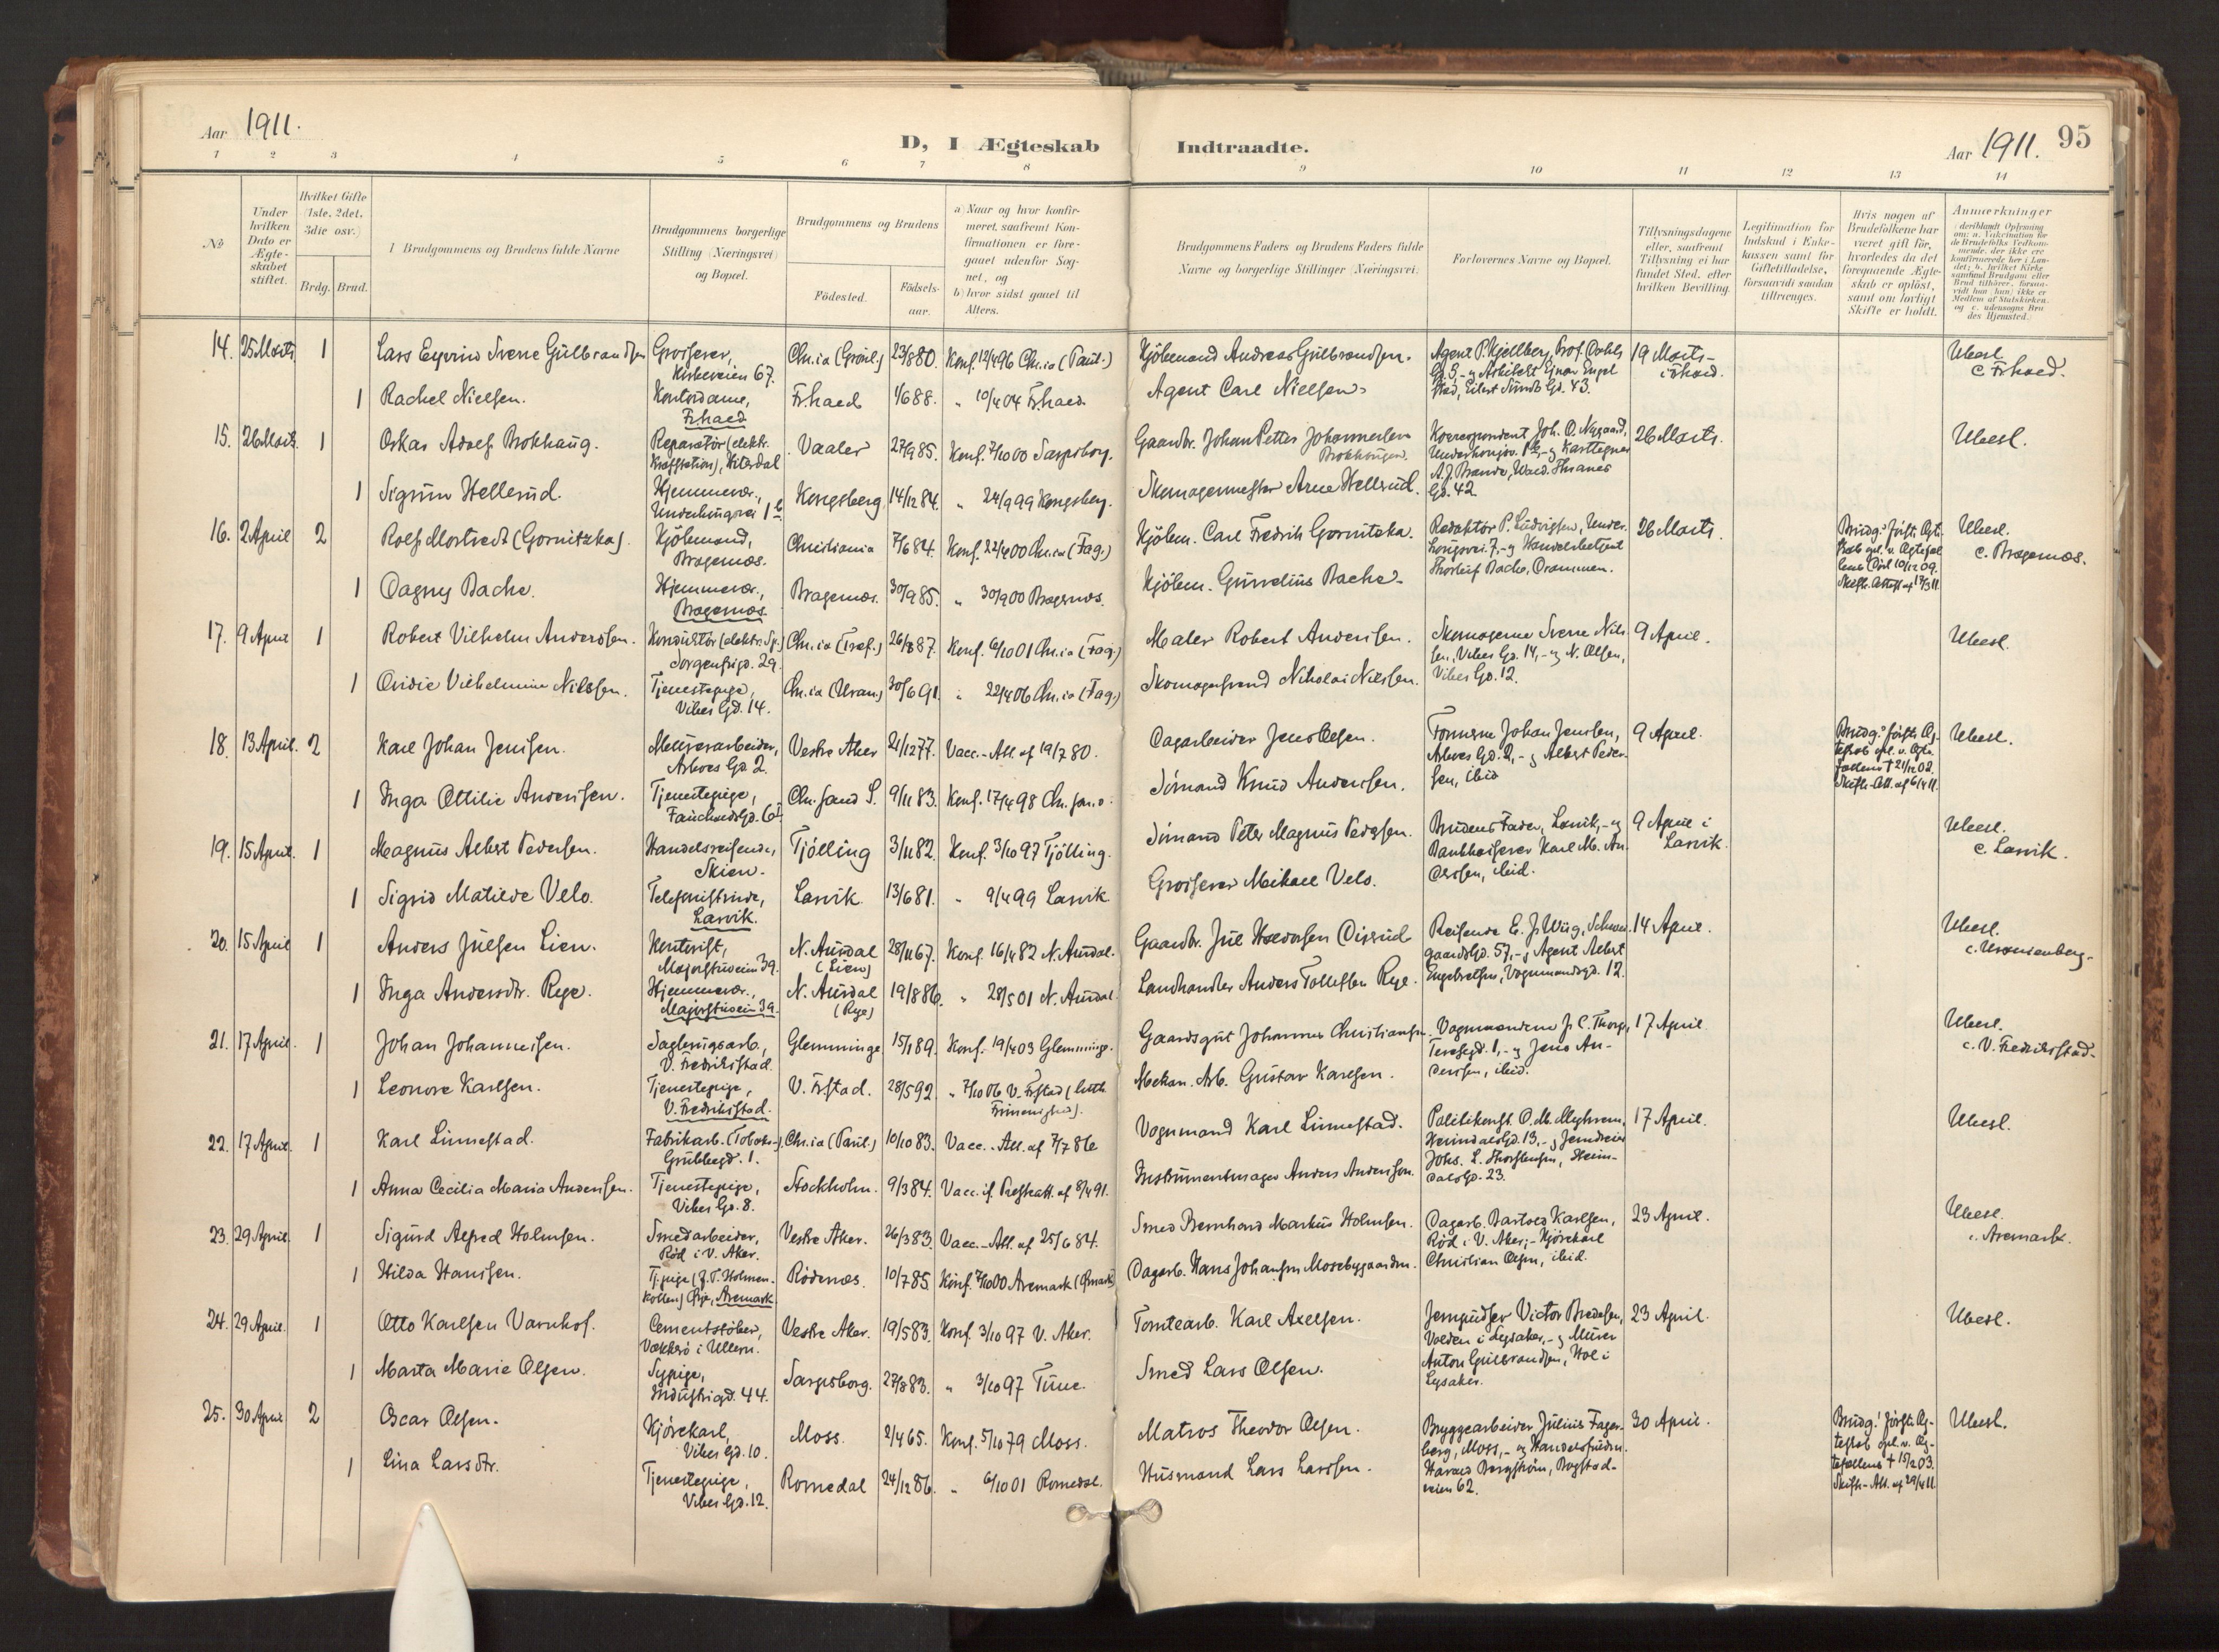 Aar 1911.
D, I Ægteskab Indtraadte.
Aar 1911. 95
1 2 3 4 5 6 7 8 9 10 11 12 13 14
No
Under hvilken Dato er Ægteskabet stiftet.
Hvilket Gifte (1ste, 2det, 3die osv.)
Brdg. Brud.
Brudgommens og Brudens fulde Navne
Brudgommens borgerlige Stilling (Næringsvei) og Bopæl.
Brudgommens og Brudens
Födested.
Födsels-aar.
a) Naar og hvor konfirmeret, saafremt Konfirmationen er foregaaet udenfor Sognet, og
b) hvor sidst gaaet til Alters.
Brudgommens Faders og Brudens Faders fulde Navne og borgerlige Stillinger (Næringsvei)
Forlovernes Navne og Bopæl.
Tillysningsdagene eller, saafremt Tillysning ei har fundet Sted, efter hvilken Bevilling.
Legitimation for Indskud i Enkekassen samt for Giftetilladelse, forsaavidt saadan tiltrænges.
Hvis nogen af Brudefolkene har været gift för, hvorledes da det foregaaende Ægteskab er oplöst, samt om lovligt Skifte er holdt.
Anmærkninger
14. 25 Marts 1 Lars Eyvind Sverre Gulbrandsen Grosserer, Kirkeveien 67. Chr.ia (Grönl.) 23/8 80. Konf. 12/4 96 Chr.ia (Paul.) Kjöbmand Andreas Gulbrandsen. Agent P. Kjellberg, Prof. Dahls Gd. 5 - og Arkitekt Ejnar Engelstad, Eilert Sunds Gd. 43. 19 Marts - i Frhald. Ubesl. c. Frhald.
1 Rachel Nielsen. Kontordame, Frhald Frhald 1/6 88. " 10/4 04 Frhald Agent Carl Nielsen.
15. 26 Marts. 1 Oskar Adolf Brokhaug. Reparatör (elektr. Kraftstation), Hiterdal Vaaler 27/9 85. Konf. 7/10 00 Sarpsborg. Gaardbr. Johan Petter Johannesen Brokhaugen. Korrespondent Joh. O. Nygaard, 26 Marts. Ubesl.
1 Sigrun Hellerud. Hjemmevær., Kongsberg 14/12 84. " 24/9 99 Kongsberg. Skomagermester Arne Hellerud. Gd. 42.
16. 2 April 2 Rolf Mortvedt (Gornitzka). Kjöbmand, Bragernæs. Christiania 7/6 84. Konf. 22/4 00 Chr.ia (Fag.) Kjöbm. Carl Fredrik Gornitzka. Redaktör P. Ludvigsen, Under- 7, - og Handelsbetjent Thorleif Bache, Drammen. 26 Marts. Ubesl. c. Bragernæs.
1 Dagny Bache. Hjemmevær., Bragernæs. Bragernæs. 30/9 85. " 30/9 00 Bragernæs. Kjöbm. Gunelius Bache.
17. 9 April 1 Robert Vilhelm Anderssen. Konduktör (elektr. Sp.) Sorgenfrigd. 29. Chr.ia (Tref.) 26/8 87. Konf. 6/10 01 Chr.ia (Fag.) Maler Robert Anderssen. Skomagerne Sverre Nilssen, Vibes Gd. 14, - og N. Olsen, Vibes Gd. 12. 9 April. Ubesl.
1 Ovidie Vilhelmine Nilssen. Tjenestepige, Vibes Gd. 14. Chr.ia (Uran.) 30/6 91. " 22/4 06 Chr.ia (Fag.) Skomagersvend Nikolai Nilssen.
18. 13 April. 2 Karl Johan Jenssen. Meieriarbeider, Gd. 2. Vestre Aker 21/12 77. Vacc.-Att. af 19/7 80. Dagarbeider Jens Olsen. Formerne Johan Jenssen, Gd. 2, - og Albert Pedersen, ibid. 9 April. Ubesl.
1 Inga Ottilie Anderssen. Tjenestepige, Fauchaldsgd. 6. Chr.sand S. 9/11 83. Konf. 17/4 98 Chr.sand. Sömand Knud Anderssen.
19. 15 April. 1 Magnus Albert Pedersen. Handelsreisende, Skien. Tjölling 3/11 82. Konf. 3/10 97 Tjölling. Sömand Peter Magnus Pedersen. Brudens Fader, Larvik, - og Bankkasserer Karl M. Anderssen, ibid. 9 April i Larvik. Ubesl. c. Larvik.
1 Sigrid Matilde Velo. Telefonistinde, Larvik. Larvik 13/6 81. " 9/4 99 Larvik Grosserer Mikael Velo.
20. 15 April 1 Anders Julsen Lien. Kontorist, Majorstuveien 39. N. Aurdal (Lien) 28/11 67. Konf. 16/4 82 N. Aurdal. Gaardbr. Jul Halvorsen Disrud Reisende E. J. Wiig, Schweigaardsgd. 57, - og Agent Albert Engebretsen, Vognmandsgd. 12. 14 April. Ubesl. c. Uranienborg.
1 Inga Andersdtr. Rye. Hjemmevær., Majorstuveien 39. N. Aurdal (Rye) 19/8 86. " 28/5 01 N. Aurdal. Landhandler Anders Tollefsen Rye.
21. 17 April. 1 Johan Johannessen. Daglönsarb., V. Fredrikstad. Glemminge 15/1 89. Konf. 19/4 03 Glemminge. Gaardsgut Johannes Christiansen. Vognmændene J. C. Thorp, 1, - og Jens Anderssen, ibid. 17 April. Ubesl. c. V. Fredriksstad.
1 Leonore Karlsen. Tjenestepige, V. Fredriksstad. V. Fr.stad. 28/5 92. " 7/10 06 V. Fr.stad (luth. Frimenighed). Mekan. Arb. Gustav Karlsen.
22. 17 April. 1 Karl Linnestad. Fabrikarb. (Tobaks-), Grubbegd. 1. Chr.ia (Paul.) 10/10 83. Vacc.-Att. af 7/7 86 Vognmand Karl Linnestad. Politikonst. O. M. Myhrvm, Heimdalsgd. 13, - og Jerndreier Johs. L. Thorstensen, Heimdalsgd. 23. 17 April. Ubesl.
1 Anna Cecilia Maria Anderssen. Tjenestepige, Vibes Gd. 8. Stockholm. 9/3 84. Vacc. if. Prestatt. af 8/4 91. Instrumentmager Anders Andersson.
23. 29 April. 1 Sigurd Alfred Holmsen. Smedarbeider, Röd i V. Aker. Vestre Aker. 26/3 83. Vacc.-Att. af 25/6 84. Smed Bernhard Markus Holmsen. Dagarb. Bartold Karlsen, Röd i V. Aker, - Kjörekarl Christian Olsen, ibid. 23 April. Ubesl. c. Aremark.
1 Hilda Hanssen. Tj.pige (Holmenkollen) Örje, Aremark Rödenæs. 10/7 85. Konf. 7/10 00 Aremark (Ömark) Dagarb. Hans Johansen Mosebygaarden.
24. 29 April. 1 Otto Karlsen Varnhof. Cementstöber, Vækkerö i Ullern. Vestre Aker. 19/5 83. Konf. 3/10 97 V. Aker. Tomtearb. Karl Axelsen. Jerngudser Victor Bredesen, Volden i Lysaker, - og Murer Anton Gulbrandsen, Hol i Lysaker. 23 April. Ubesl.
1 Marta Marie Olsen. Sypige, Industrigd. 44. Sarpsborg. 27/8 83. " 3/10 97 Tune. Smed Lars Olsen.
25. 30 April 2 Oscar Olsen. Kjörekarl, Vibes Gd. 10. Moss. 2/4 65. Konf. 5/10 79 Moss. Matros Theodor Olsen. Bryggearbeider Julius Fagerberg, Moss, - og Handelsfuldm. Harald Bergström, Bogstadveien 62. 30 April. Ubesl.
1 Lina Larsdtr. Tjenestepige, Vibes Gd. 12. Romedal 24/12 86. " 6/10 01 Romedal. Husmand Lars Larssen.